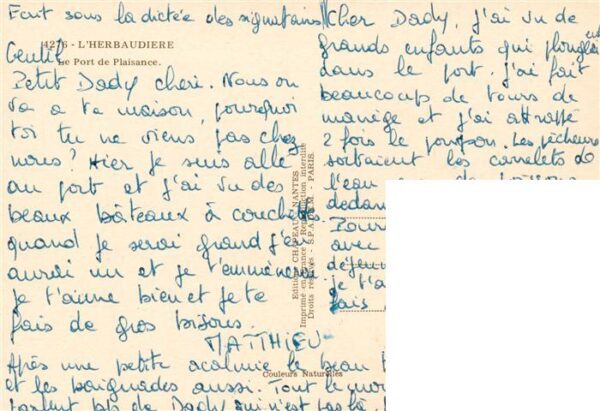 Ecrit sous la dictée des signataires
4276 - L'HERBAUDIERE
Le Port de Plaisance.
Gentil
Petit Dady chéri. Nous on
va a ta maison, pourquoi
toi tu ne viens pas chez
nous? Hier je suis allé
au port et j'ai vu des
beaux bâteaux à couchettes
quand je serai grand j'en
aurai un et je t'emmènerai
je t'aime bien et je te
fais de gros bisous.
MATTHIEU
Après une petite acalmie le beau
et les baignades aussi. Tout le
parlent pas de Dady qui n'est pas là
Cher Dady, j'ai vu de
grands enfants qui plongeaient
dans le port, j'ai fait
beaucoup de tours de
manège et j'ai attrapé
2 fois le pompon. Les pêcheurs
sortaient les carrelets de
l'eau
dedans
Pour
avec
déjeuner
je t'a
fais
Editions CHAPEAU - NANTES
Imprimé en France - Reproduction interdite
Droits réservés - S.P.A.D.E.M. - PARIS.
Couleurs Naturelles